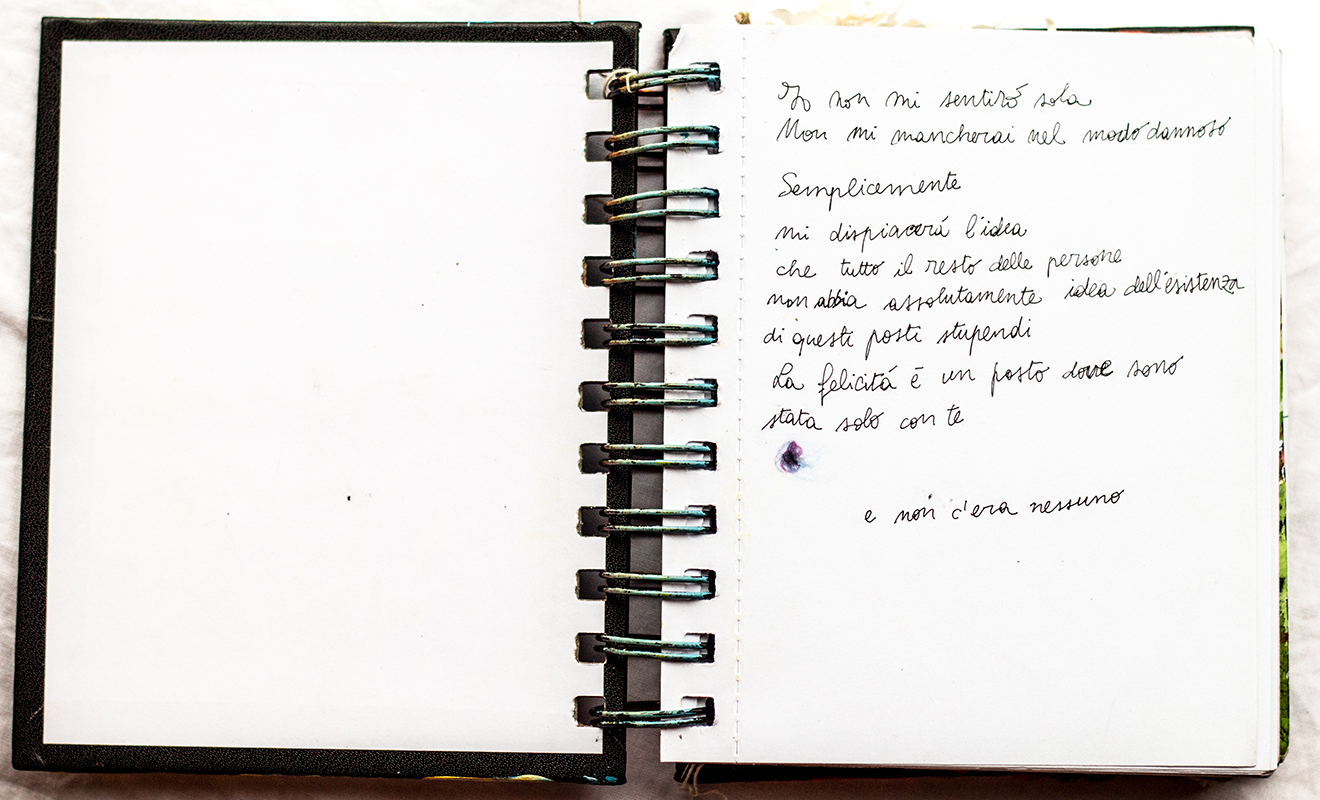 Io non mi sentiró sola
Non mi mancherai nel modo dannoso
Semplicemente
mi dispiacerá l'idea
che tutto il resto delle persone
non abbia assolutamente idea dell'esistenza
di questi posti stupendi
La felicitá é un posto dove sono
stata solo con te
e non c'era nessuno